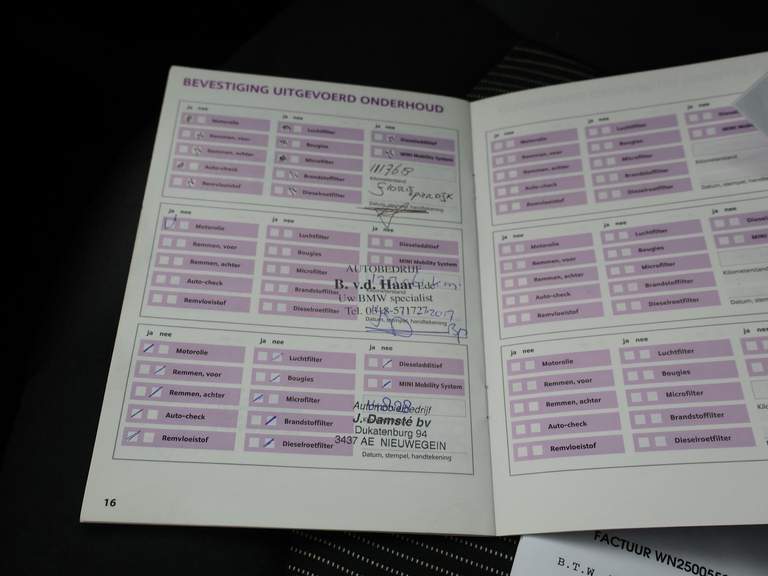 BEVESTIGING UITGEVOERD ONDERHOUD
ja nee
Motorolie
Remmen, voor
Remmen, achter
Auto-check
Remvloeistof
ja nee
Luchtfilter
Bougies
Microfilter
Brandstoffilter
Dieselroetfilter
ja nee
Dieseladditief
MINI Mobility System
111768
Kilometerstand
Datum, stempel, handtekening
ja nee
Motorolie
Remmen, voor
Remmen, achter
Auto-check
Remvloeistof
ja nee
Luchtfilter
Bougies
Microfilter
Brandstoffilter
Dieselroetfilter
ja nee
Dieseladditief
MINI Mobility System
AUTOBEDRIJF
B. v.d. Haar
Uw BMW specialist
Tel. 0318-571727
Datum, stempel, handtekening
ja nee
Motorolie
Remmen, voor
Remmen, achter
Auto-check
Remvloeistof
ja nee
Luchtfilter
Bougies
Microfilter
Brandstoffilter
Dieselroetfilter
ja nee
Dieseladditief
MINI Mobility System
Automobielbedrijf
J. Damsté bv
Dukatenburg 94
3437 AE NIEUWEGEIN
Datum, stempel, handtekening
16
ja nee
Motorolie
Remmen, voor
Remmen, achter
Auto-check
Remvloeistof
ja nee
Luchtfilter
Bougies
Microfilter
Brandstoffilter
Dieselroetfilter
ja nee
MINI
Kilometerstand
Datum, stempel, handtekening
ja nee
Motorolie
Remmen, voor
Remmen, achter
Auto-check
Remvloeistof
ja nee
Luchtfilter
Bougies
Microfilter
Brandstoffilter
Dieselroetfilter
ja nee
MINI
Kilometerstand
Datum, stem
ja nee
Motorolie
Remmen, voor
Remmen, achter
Auto-check
Remvloeistof
ja nee
Luchtfilter
Bougies
Microfilter
Brandstoffilter
Dieselroetfilter
ja nee
FACTUUR WN250055
B.T.W.